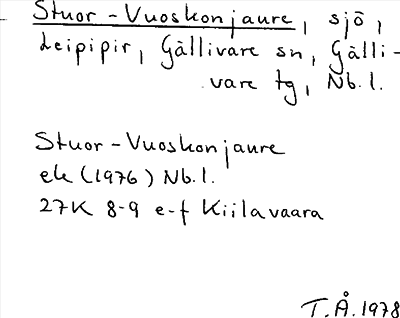 Stuor-Vuoskonjaure, sjö,
Leipipir, Gällivare sn, Gälli-
vare tg, Nb.l.
Stuor-Vuoskonjaure
ek (1976) Nb.l.
27K 8-9 e-f Kiilavaara
T.Å.1978